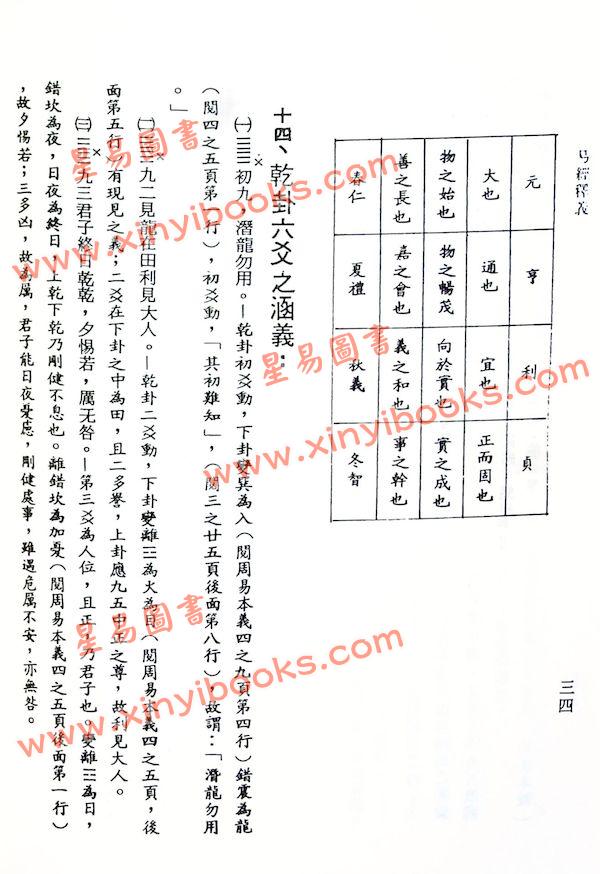 易經釋義
三四
元 亨 利 貞
大也 通也 宜也 正而固也
物之始也 物之暢茂 向於實也 實之成也
善之長也 嘉之會也 義之和也 事之幹也
春仁 夏禮 秋義 冬智
十四、乾卦六爻之涵義：
㈠☰☰初九，潛龍勿用。—乾卦初爻動，下卦變巽為入（閱周易本義四之九頁第四行）錯震為龍
（閱四之五頁第一行），初爻動，「其初難知」，（閱三之廿五頁後面第八行），故謂：「潛龍勿用
。」
㈡☰☰九二見龍在田利見大人。—乾卦二爻動，下卦變離☲為火為日（閱周易本義四之五頁，後
面第五行）有現見之義；二爻在下卦之中為田，且二多譽，上卦應九五中正之尊，故利見大人。
㈢☰☰九三君子終日乾乾，夕惕若，厲无咎。—第三爻為人位，且正，乃君子也。變離☲為日，
錯坎為夜，日夜為終日，上乾下乾乃剛健不息也。離錯坎為加憂（閱周易本義四之五頁後面第一行）
，故夕惕若；三多凶，故為厲，君子能日夜憂慮，剛健處事，雖遇危厲不安，亦無咎。
星易圖書
www.xinyibooks.com
星易圖書
www.xinyibooks.com
星易圖書
www.xinyibooks.com